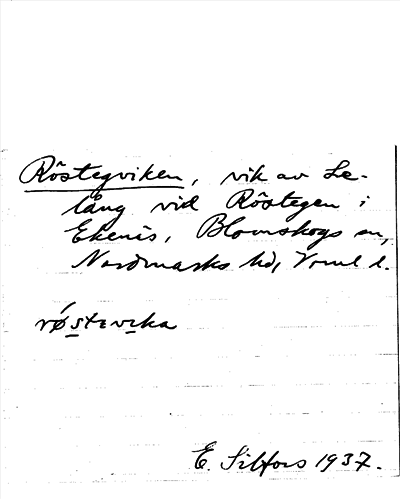 Röstegviken, vik av Le-
lång vid Röstegen i
Ekenäs, Blomskogs sn,
Nordmarks hd, Värml l.
røstɛvika
E. Silfors 1937.